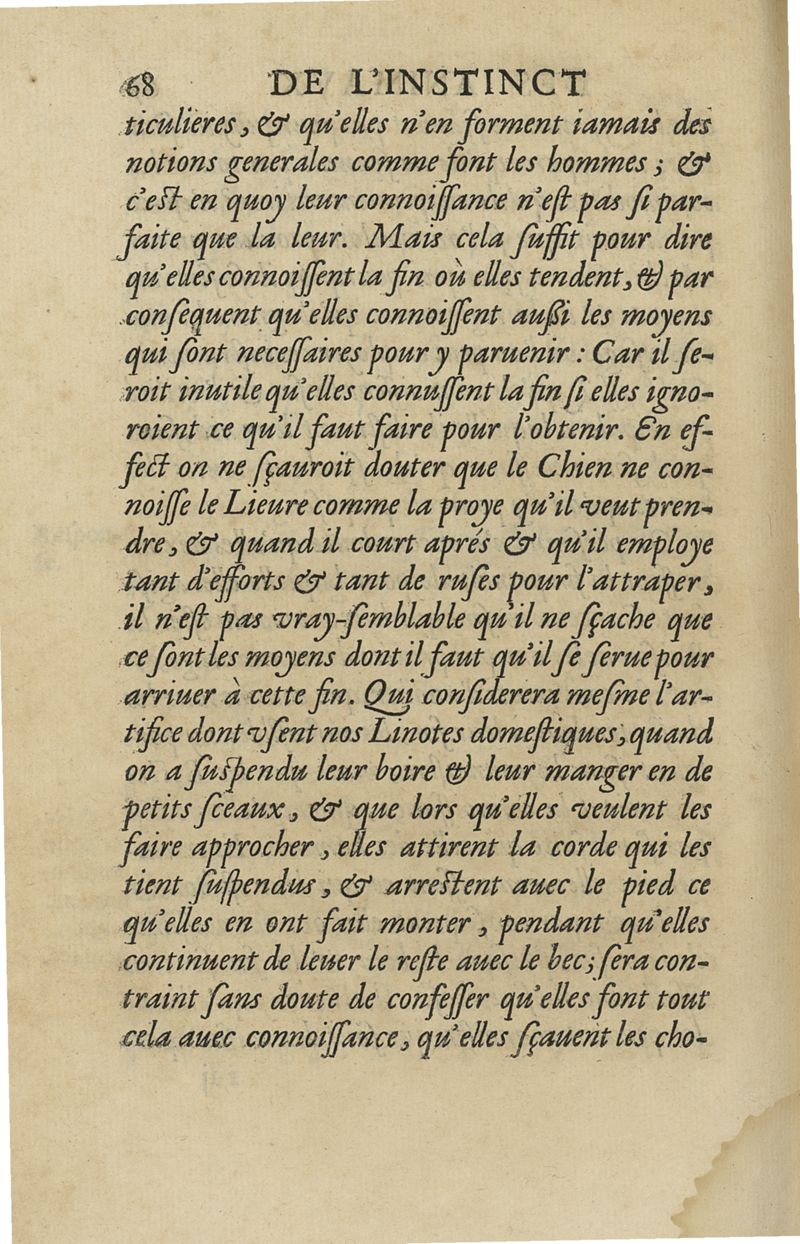 68 DE L'INSTINCT
ticulieres, & qu'elles n'en forment iamais des
notions generales comme font les hommes ; &
c'est en quoy leur connoiſſance n'eſt pas ſi par-
faite que la leur. Mais cela ſuffit pour dire
qu'elles connoiſſent la fin où elles tendent, & par
conſequent qu'elles connoiſſent auſſi les moyens
qui ſont neceſſaires pour y paruenir : Car il ſe-
roit inutile qu'elles connuſſent la fin ſi elles igno-
roient ce qu'il faut faire pour l'obtenir. En ef-
fect on ne ſçauroit douter que le Chien ne con-
noiſſe le Lieure comme la proye qu'il veut pren-
dre, & quand il court aprés & qu'il employe
tant d'efforts & tant de ruſes pour l'attraper,
il n'eſt pas vray-ſemblable qu'il ne ſçache que
ce ſont les moyens dont il faut qu'il ſe ſerue pour
arriuer à cette fin. Qui conſiderera meſme l'ar-
tifice dont vſent nos Linotes domeſtiques, quand
on a ſuſpendu leur boire & leur manger en de
petits ſceaux, & que lors qu'elles veulent les
faire approcher, elles attirent la corde qui les
tient ſuſpendus, & arrestent auec le pied ce
qu'elles en ont fait monter, pendant qu'elles
continuent de leuer le reſte auec le bec; ſera con-
traint ſans doute de confeſſer qu'elles font tout
cela auec connoiſſance, qu'elles ſçauent les cho-